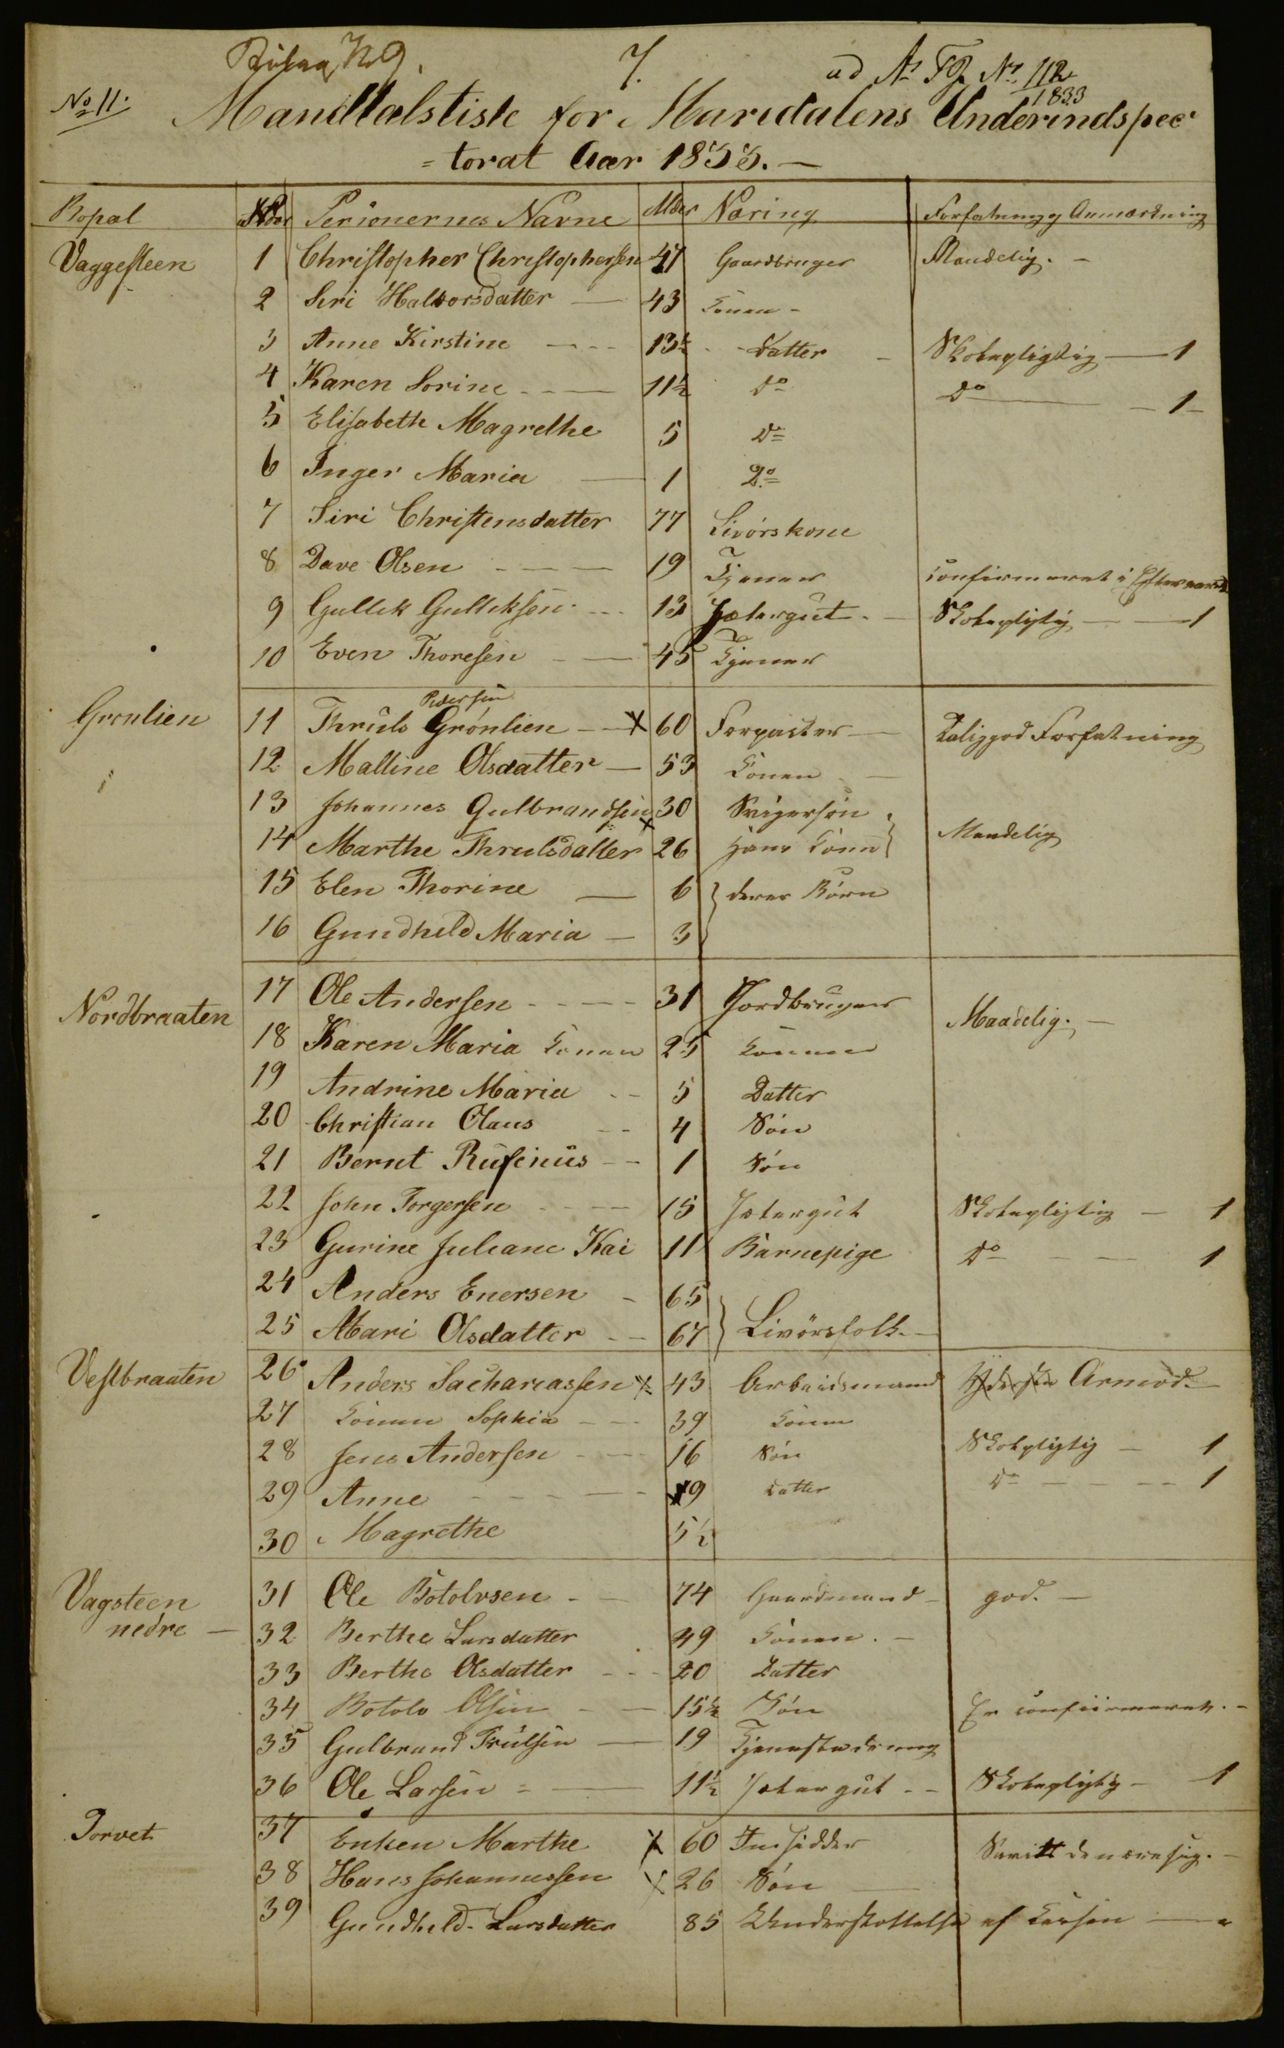 Bilag No 9. 7. ad As Fg No 112
1833
No 11. Mandtalsliste for Maridalens Underindspec
=torat Aar 1833. —
Bopæl No Personernes Navne Alder Næring Forfatning og Anmærkning
Vaggesteen 1 Christopher Christophersen 41 Gaardbruger Maadelig. —
2 Siri Halvorsdatter — 43 Konen -
3 Anne Kirstine 13½ Datter Skolepligtig — 1
4 Karen Sorine 11½ Do Do — 1
5 Elisabeth Magrethe 5 Do
6 Inger Maria — 1 Do
7 Siri Christensdatter 77 Livörskone
8 Dave Olsen 19 Tjener confirmeret i
9 Gullik Gulliksen 13 Jætergut Skolepligtig — 1
10 Even Thoresen 45 Tjener
Grönlien 11 Thruls Pedersen Grönlien — x 60 Forpagter — Taliggod Forfatning
12 Malline Olsdatter — 53 Konen
13 Johannes Gulbrandsen x 30 Svigersön
14 Marthe Thrulsdatter 26 Hans Kone Maadelig
15 Elen Thorine — 6 deres Börn
16 Gundhild Maria — 3
Nordbraaten 17 Ole Andersen 31 Jordbruger Maadelig. —
18 Karen Maria Konen 25 Konen
19 Andrine Maria 5 Datter
20 Christian Olaus 4 Sön
21 Bernt Rufinus 1 Sön
22 John Torgersen 15 Jætergut Skolepligtig — 1
23 Gurine Juliane Kai 11 Barnepige Do — 1
24 Anders Enersen 65
25 Mari Olsdatter 67 Livörsfolk. —
Vestbraaten 26 Anders Sachariassen x 43 Arbeidsmand Yderste Armod. —
27 Konen Sophia 39 Konen
28 Jens Andersen 16 Sön Skolepligtig — 1
29 Anne 9 Datter Do — 1
30 Magrethe 5½
Vagsteen 31 Ole Botolvsen 74 Gaardmand god. —
nedre — 32 Berthe Larsdatter 49 Konen. —
33 Berthe Olsdatter 20 Datter
34 Botolv Olsen 15½ Sön Er confiirmeret. —
35 Gulbrand Trulsen — 19 Tjenestedreng
36 Ole Larsen — 11½ Jætergut Skolepligtig — 1
Torvet 37 Enken Marthe x 60 Indsidder
38 Hans Johannessen x 26 Sön —
39 Gundhild Larsdatter 85 Understöttelse af Kassen —